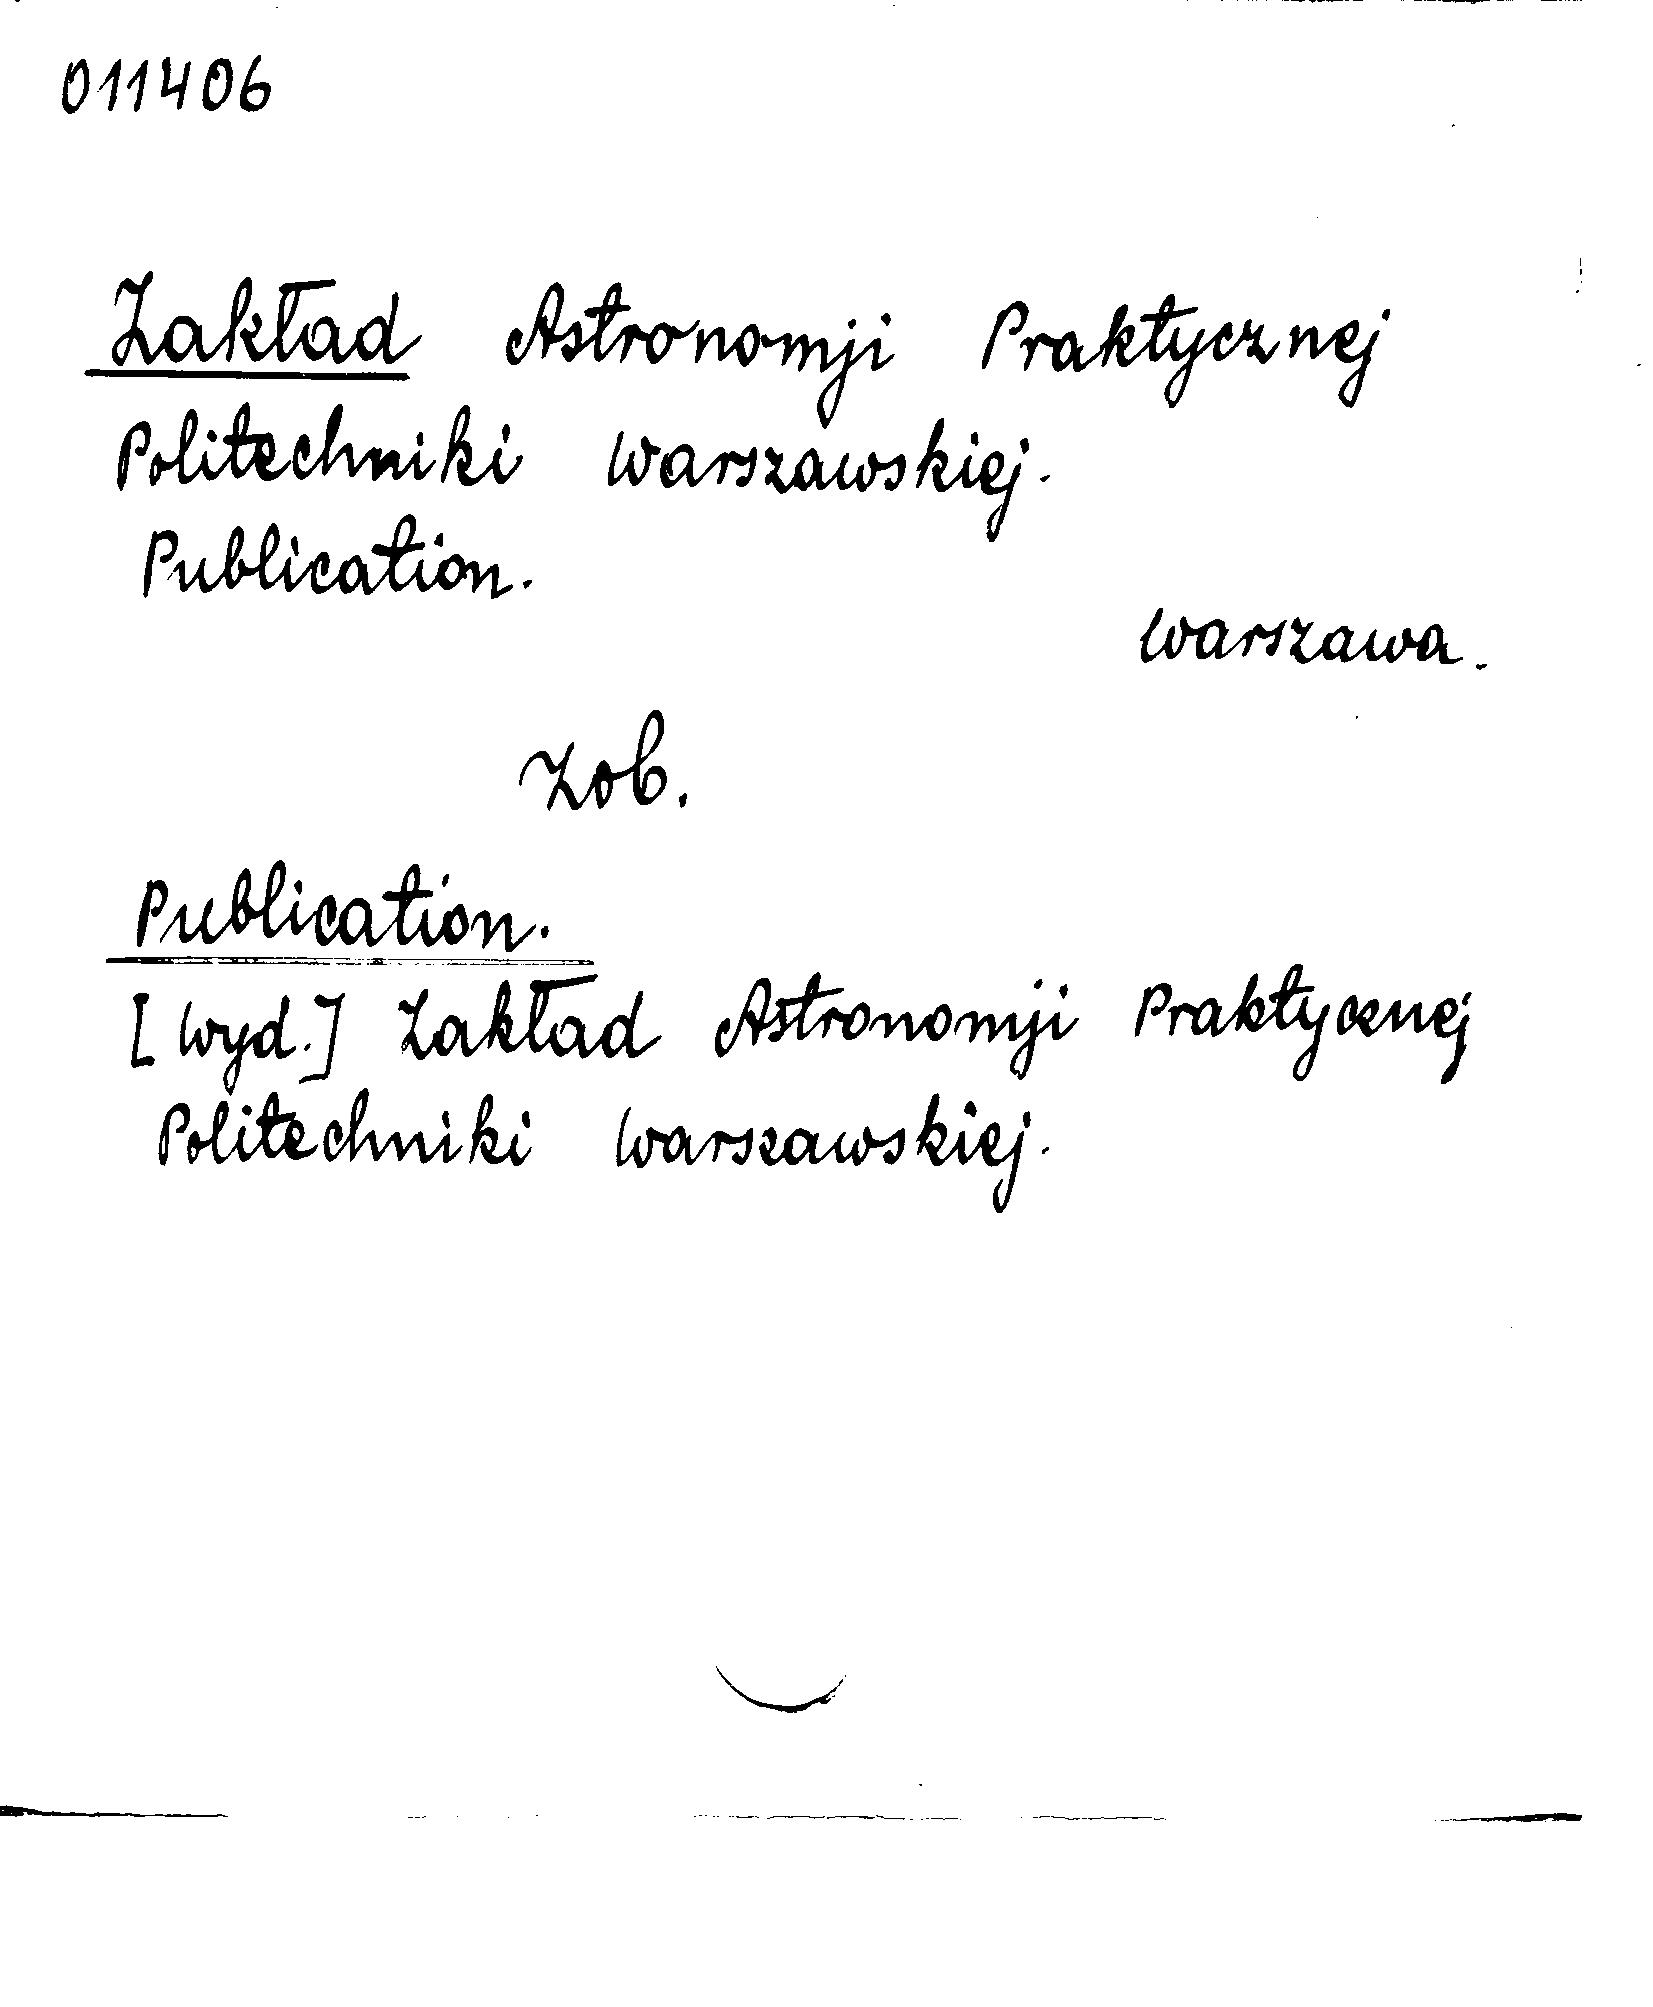 011406
Zakład Astronomji Praktycznej
Politechniki Warszawskiej.
Publication.
Warszawa.
Zob.
Publication.
[Wyd.] Zakład Astronomji Praktycznej
Politechniki Warszawskiej.